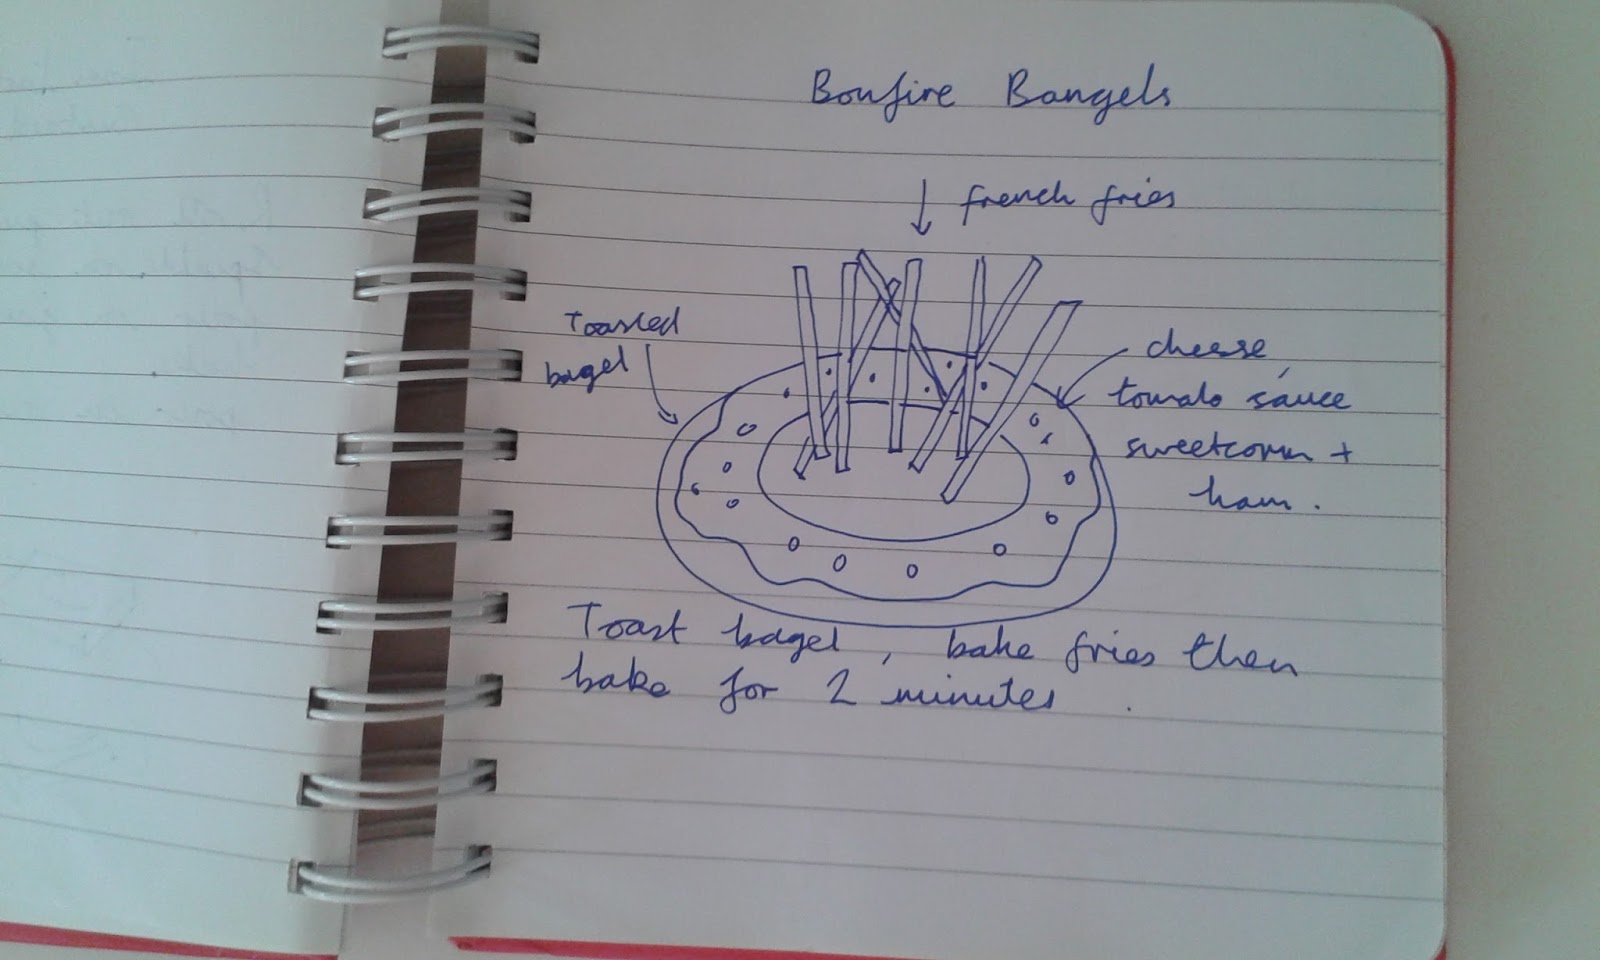 Bonfire Bangels
french fries
Toasted
bagel
cheese,
tomato sauce
sweetcorn +
ham.
Toast bagel, bake fries then
bake for 2 minutes.